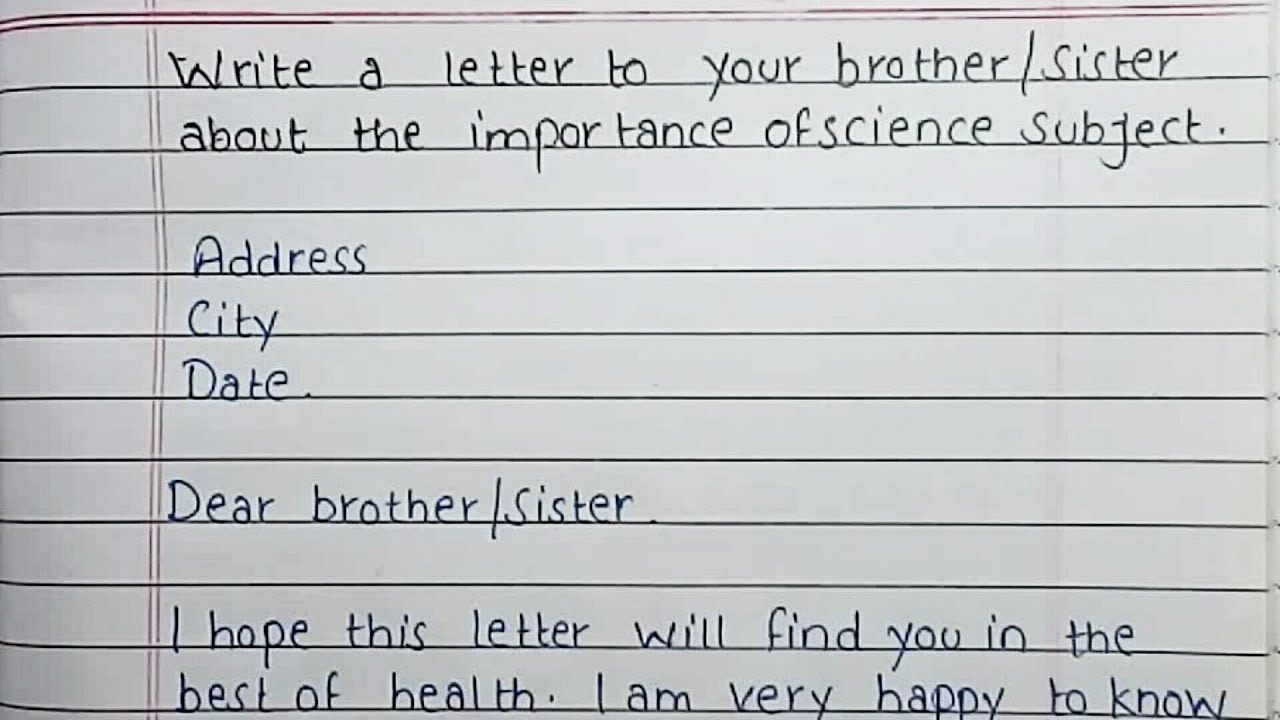 Write a letter to your brother/Sister
about the importance of science subject.
Address
City
Date.
Dear brother/Sister.
I hope this letter will find you in the
best of health. I am very happy to know